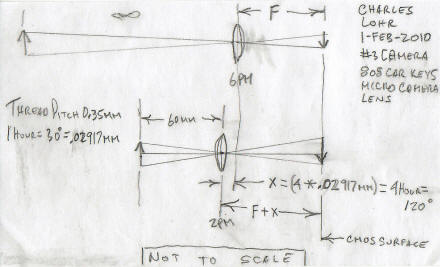 ∞
F
CHARLES
LOHR
1-FEB-2010
#3 CAMERA
808 CAR KEYS
MICRO CAMERA
LENS
6PM
THREAD PITCH 0.35MM
1 HOUR = 30° = .02917MM
60MM
X = (4 * .02917MM) = 4 HOUR =
120°
F+X
2PM
CMOS SURFACE
NOT TO SCALE